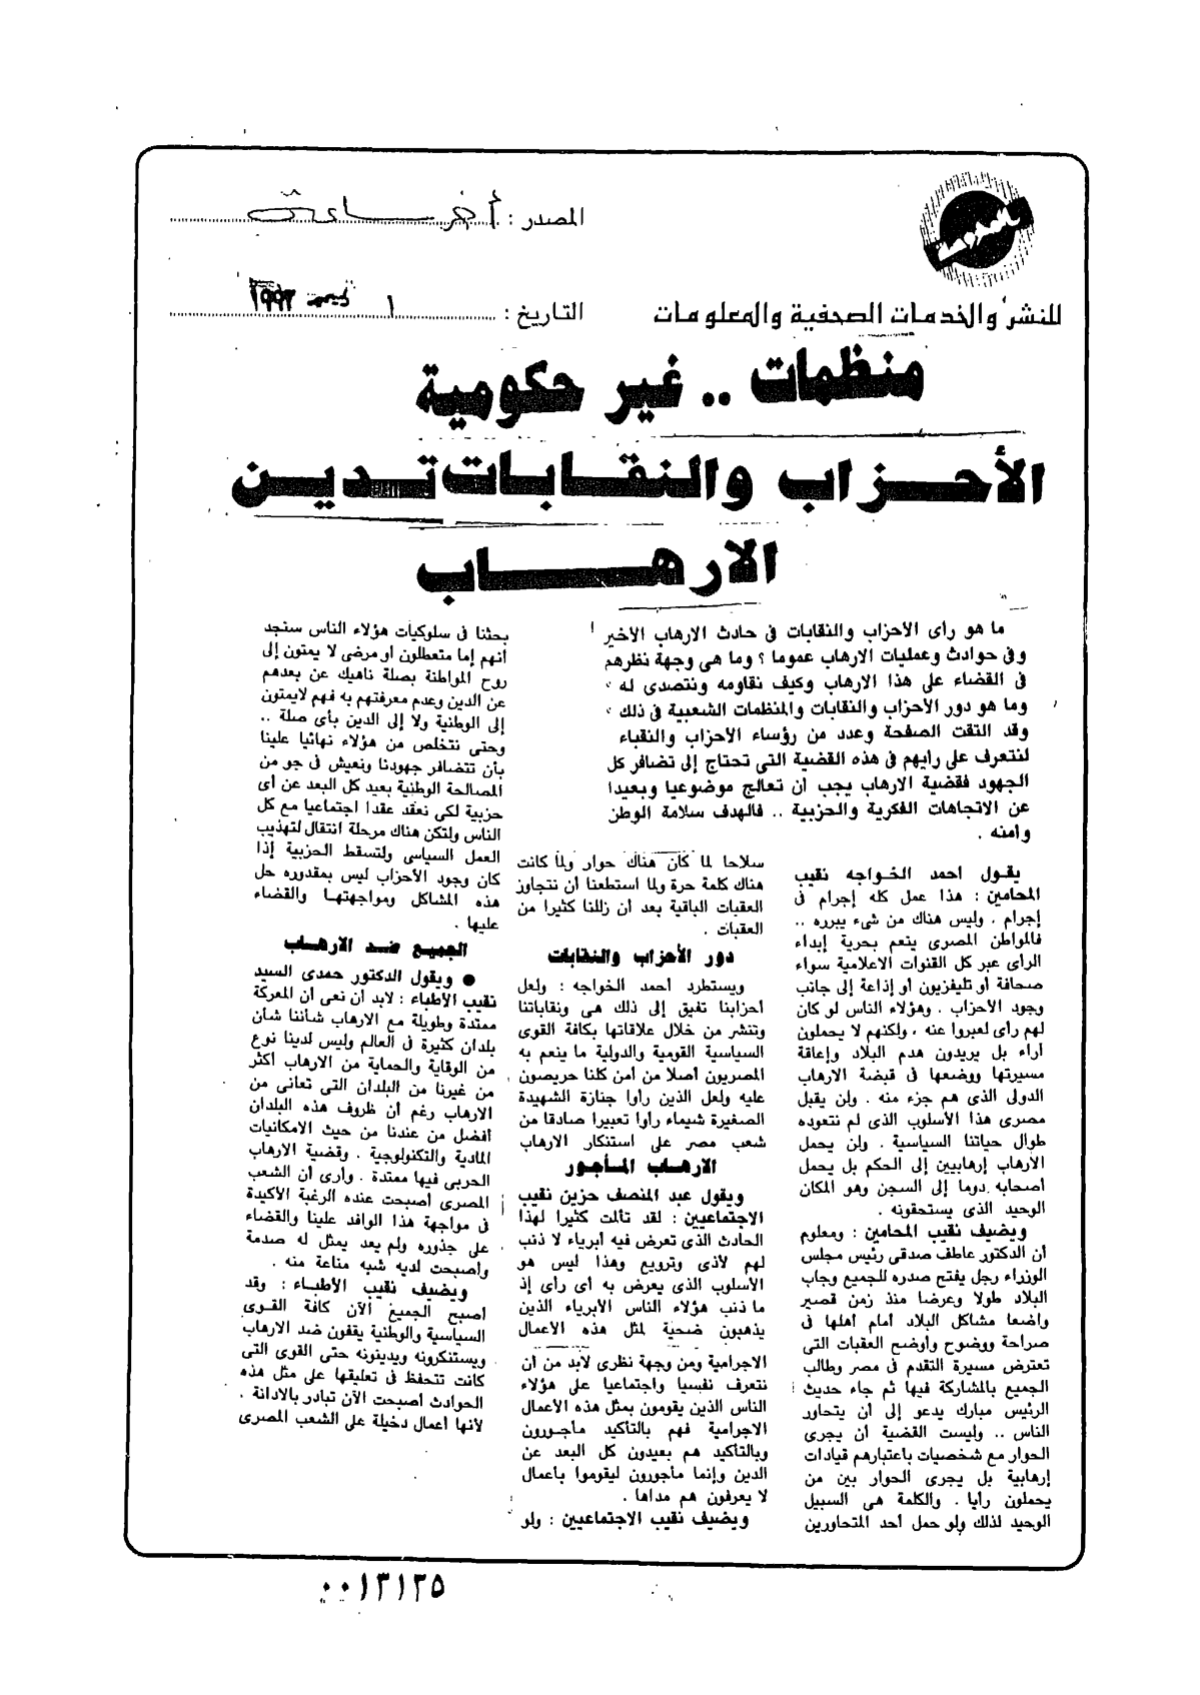 المصدر : أخر ساعة
التاريخ : ١ ديسمبر ١٩٩٣
للنشر والخدمات الصحفية والمعلومات
منظمات .. غير حكومية
الأحزاب والنقابات تدين
الارهاب
ما هو رأى الأحزاب والنقابات فى حادث الارهاب الأخير
وفى حوادث وعمليات الارهاب عموما ؟ وما هى وجهة نظرهم
فى القضاء على هذا الارهاب وكيف نقاومه ونتصدى له ،
وما هو دور الأحزاب والنقابات والمنظمات الشعبية فى ذلك ،
وقد التقت الصفحة وعدد من رؤساء الأحزاب والنقباء
لنتعرف على رأيهم فى هذه القضية التى تحتاج إلى تضافر كل
الجهود فقضية الارهاب يجب أن تعالج موضوعيا وبعيدا
عن الاتجاهات الفكرية والحزبية .. فالهدف سلامة الوطن
وأمنه .
يقول أحمد الخواجه نقيب
المحامين : هذا عمل كله إجرام فى
إجرام . وليس هناك من شىء يبرره ..
فالمواطن المصرى ينعم بحرية إبداء
الرأى عبر كل القنوات الاعلامية سواء
صحافة أو تليفزيون أو إذاعة إلى جانب
وجود الأحزاب . وهؤلاء الناس لو كان
لهم رأى لعبروا عنه ، ولكنهم لا يحملون
أراء بل يريدون هدم البلاد وإعاقة
مسيرتها ووضعها فى قبضة الارهاب
الدولى الذى هم جزء منه . ولن يقبل
مصرى هذا الأسلوب الذى لم نتعوده
طوال حياتنا السياسية . ولن يحمل
الارهاب إرهابيين إلى الحكم بل يحمل
أصحابه دوما إلى السجن وهو المكان
الوحيد الذى يستحقونه .
ويضيف نقيب المحامين : ومعلوم
أن الدكتور عاطف صدقى رئيس مجلس
الوزراء رجل يفتح صدره للجميع وجاب
البلاد طولا وعرضا منذ زمن قصير
واضعا مشاكل البلاد أمام أهلها فى
صراحة ووضوح وأوضح العقبات التى
تعترض مسيرة التقدم فى مصر وطالب
الجميع بالمشاركة فيها ثم جاء حديث
الرئيس مبارك يدعو إلى أن يتحاور
الناس .. وليست القضية أن يجرى
الحوار مع شخصيات باعتبارهم قيادات
إرهابية بل يجرى الحوار بين من
يحملون رأيا . والكلمة هى السبيل
الوحيد لذلك ولو حمل أحد المتحاورين
سلاحا لما كان هناك حوار ولما كانت
هناك كلمة حرة ولما استطعنا أن نتجاوز
العقبات الباقية بعد أن زللنا كثيرا من
العقبات .
دور الأحزاب والنقابات
ويستطرد أحمد الخواجه : ولعل
أحزابنا تفيق إلى ذلك هى ونقاباتنا
وتنشر من خلال علاقاتها بكافة القوى
السياسية القومية والدولية ما ينعم به
المصريون أصلا من أمن كلنا حريصون
عليه ولعل الذين رأوا جنازة الشهيدة
الصغيرة شيماء رأوا تعبيرا صادقا من
شعب مصر على استنكار الارهاب
الارهاب المأجور
ويقول عبد المنصف حزين نقيب
الاجتماعيين : لقد تألمت كثيرا لهذا
الحادث الذى تعرض فيه أبرياء لا ذنب
لهم لأذى وترويع وهذا ليس هو
الأسلوب الذى يعرض به أى رأى إذ
ما ذنب هؤلاء الناس الأبرياء الذين
يذهبون ضحية لمثل هذه الأعمال
الاجرامية ومن وجهة نظرى لابد من أن
نتعرف نفسيا واجتماعيا على هؤلاء
الناس الذين يقومون بمثل هذه الأعمال
الاجرامية فهم بالتأكيد مأجورون
وبالتأكيد هم بعيدون كل البعد عن
الدين وإنما مأجورون ليقوموا بأعمال
لا يعرفون هم مداها .
ويضيف نقيب الاجتماعيين : ولو
بحثنا فى سلوكيات هؤلاء الناس سنجد
أنهم إما متعطلون أو مرضى لا يمتون إلى
روح المواطنة بصلة ناهيك عن بعدهم
عن الدين وعدم معرفتهم به فهم لايمتون
إلى الوطنية ولا إلى الدين بأى صلة ..
وحتى نتخلص من هؤلاء نهائيا علينا
بأن تتضافر جهودنا ونعيش فى جو من
المصالحة الوطنية بعيد كل البعد عن أى
حزبية لكى نعقد عقدا اجتماعيا مع كل
الناس ولتكن هناك مرحلة انتقال لتهذيب
العمل السياسى ولتسقط الحزبية إذا
كان وجود الأحزاب ليس بمقدوره حل
هذه المشاكل ومواجهتها والقضاء
عليها .
الجميع ضد الارهاب
● ويقول الدكتور حمدى السيد
نقيب الأطباء : لابد أن نعى أن المعركة
ممتدة وطويلة مع الارهاب شأننا شأن
بلدان كثيرة فى العالم وليس لدينا نوع
من الوقاية والحماية من الارهاب أكثر
من غيرنا من البلدان التى تعانى من
الارهاب رغم أن ظروف هذه البلدان
أفضل من عندنا من حيث الامكانيات
المادية والتكنولوجية . وقضية الارهاب
الحربى فيها ممتدة . وأرى أن الشعب
المصرى أصبحت عنده الرغبة الأكيدة
فى مواجهة هذا الوافد علينا والقضاء
على جذوره ولم يعد يمثل له صدمة
وأصبحت لديه شبه مناعة منه .
ويضيف نقيب الأطباء : وقد
أصبح الجميع الآن كافة القوى
السياسية والوطنية يقفون ضد الارهاب
ويستنكرونه ويدينونه حتى القوى التى
كانت تتحفظ فى تعليقها على مثل هذه
الحوادث أصبحت الآن تبادر بالادانة .
لأنها أعمال دخيلة على الشعب المصرى
٠٠١٣١٣٥